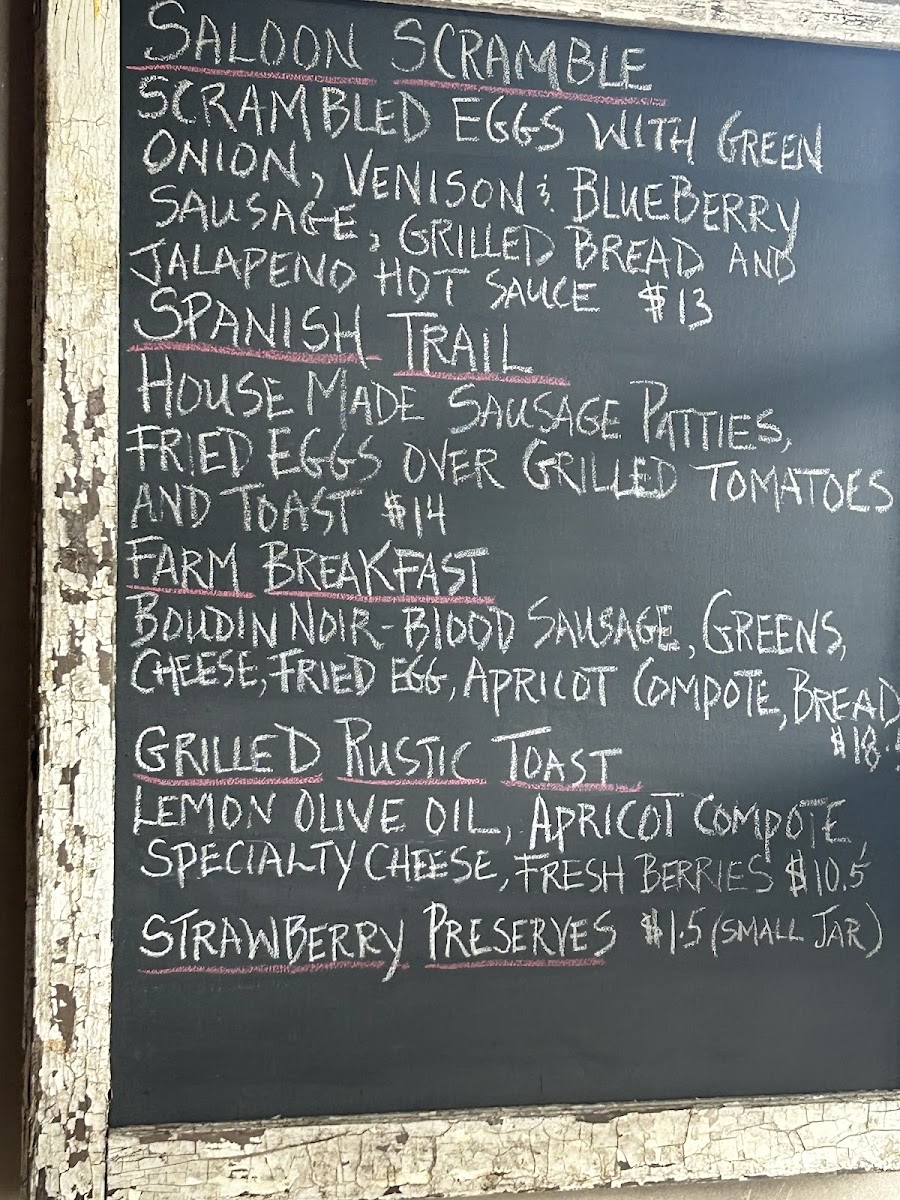 SALOON SCRAMBLE
SCRAMBLED EGGS WITH GREEN
ONION, VENISON & BLUEBERRY
SAUSAGE, GRILLED BREAD AND
JALAPENO HOT SAUCE $13
SPANISH TRAIL
HOUSE MADE SAUSAGE PATTIES,
FRIED EGGS OVER GRILLED TOMATOES
AND TOAST $14
FARM BREAKFAST
BOUDIN NOIR-BLOOD SAUSAGE, GREENS,
CHEESE, FRIED EGG, APRICOT COMPOTE, BREAD
GRILLED RUSTIC TOAST
LEMON OLIVE OIL, APRICOT COMPOTE,
SPECIALTY CHEESE, FRESH BERRIES $10.5
STRAWBERRY PRESERVES $1.5 (SMALL JAR)